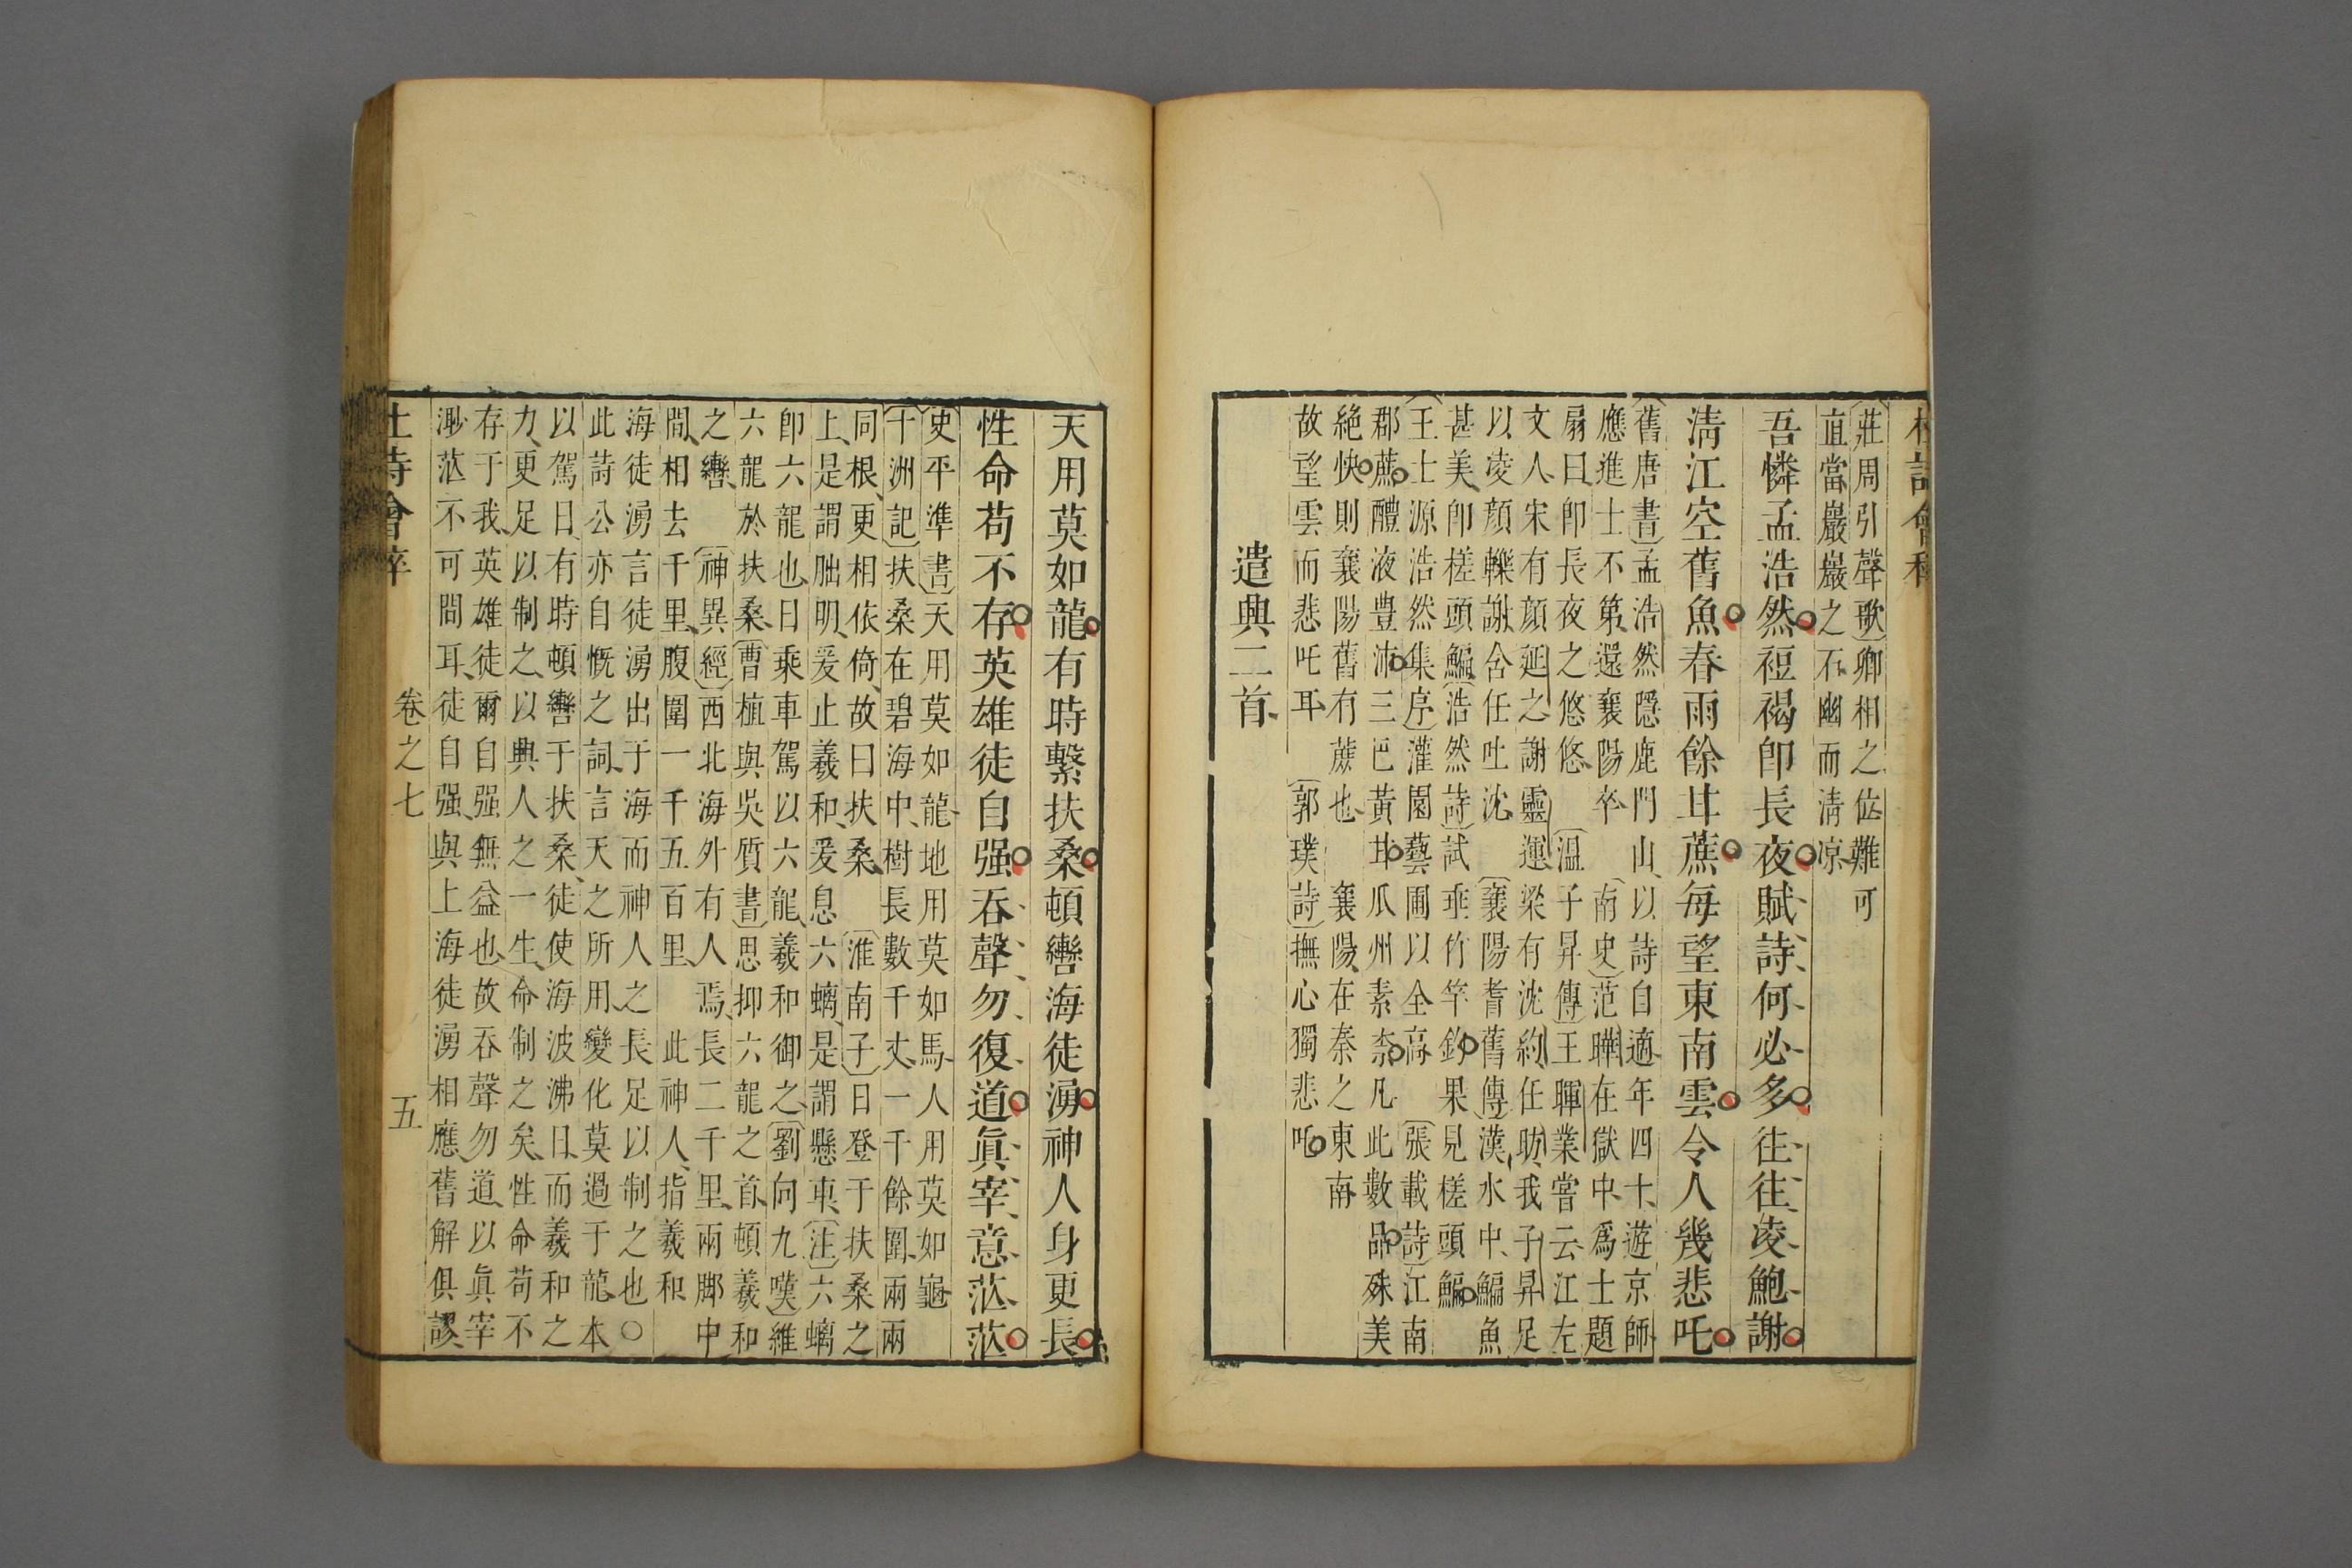 杜詩會稡
莊周引聲歌卿相之位難可
直當巖巖之石幽而清凉
吾憐孟浩然裋褐卽長夜賦詩何必多往往凌鮑謝
清江空舊魚春雨餘甘蔗每望東南雲令人幾悲吒
舊唐書孟浩然隱鹿門山以詩自適年四十遊京師
應進士不第還襄陽卒南史范曄在獄中爲士題
扇曰卽長夜之悠悠溫子昇傳王暉業嘗云江左
文人宋有顔延之謝靈運梁有沈約任昉我子昇足
以凌顔轢謝含任吐沈襄陽耆舊傳漢水中鯿魚
甚美卽槎頭鯿浩然詩試垂竹竿釣果見槎頭鯿
王士源浩然集序灌園藝圃以全高張載詩江南
郡蔗醴液豊沛三巴黃甘瓜州素柰凡此數品殊美
絶快則襄陽舊有蔗也襄陽在秦之東南
故望雲而悲吒耳郭璞詩撫心獨悲吒
遣興二首
天用莫如龍有時繫扶桑頓轡海徒湧神人身更長
性命苟不存英雄徒自强吞聲勿復道眞宰意茫茫
史平準書天用莫如龍地用莫如馬人用莫如龜
十洲記扶桑在碧海中樹長數千丈一千餘圍兩兩
同根更相依倚故曰扶桑淮南子日登于扶桑之
上是謂朏明爰止羲和爰息六螭是謂懸車注六螭
卽六龍也日乘車駕以六龍羲和御之劉向九嘆維
六龍於扶桑曹植與吳質書思抑六龍之首頓羲和
之轡神異經西北海外有人焉長二千里兩脚中
間相去千里腹圍一千五百里此神人指羲和
海徒湧言徒湧出于海而神人之長足以制之也○
此詩公亦自慨之詞言天之所用變化莫過于龍本
以駕日有時頓轡于扶桑徒使海波沸日而羲和之
力更足以制之以興人之一生命制之矣性命苟不
存于我英雄徒爾自强無益也故吞聲勿道以眞宰
渺茫不可問耳徒自强與上海徒湧相應舊解俱謬
杜詩會稡 卷之七 五